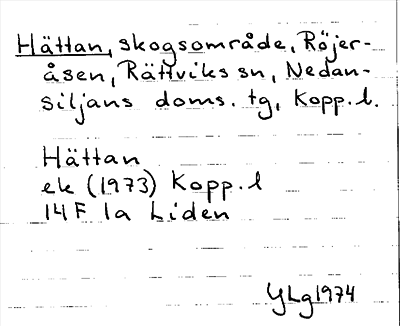 Hättan, skogsområde, Röjer-
åsen, Rättviks sn, Nedan-
siljans doms. tg, Kopp. l.
Hättan
ek (1973) Kopp. l
14 F 1a Liden
YLg 1974